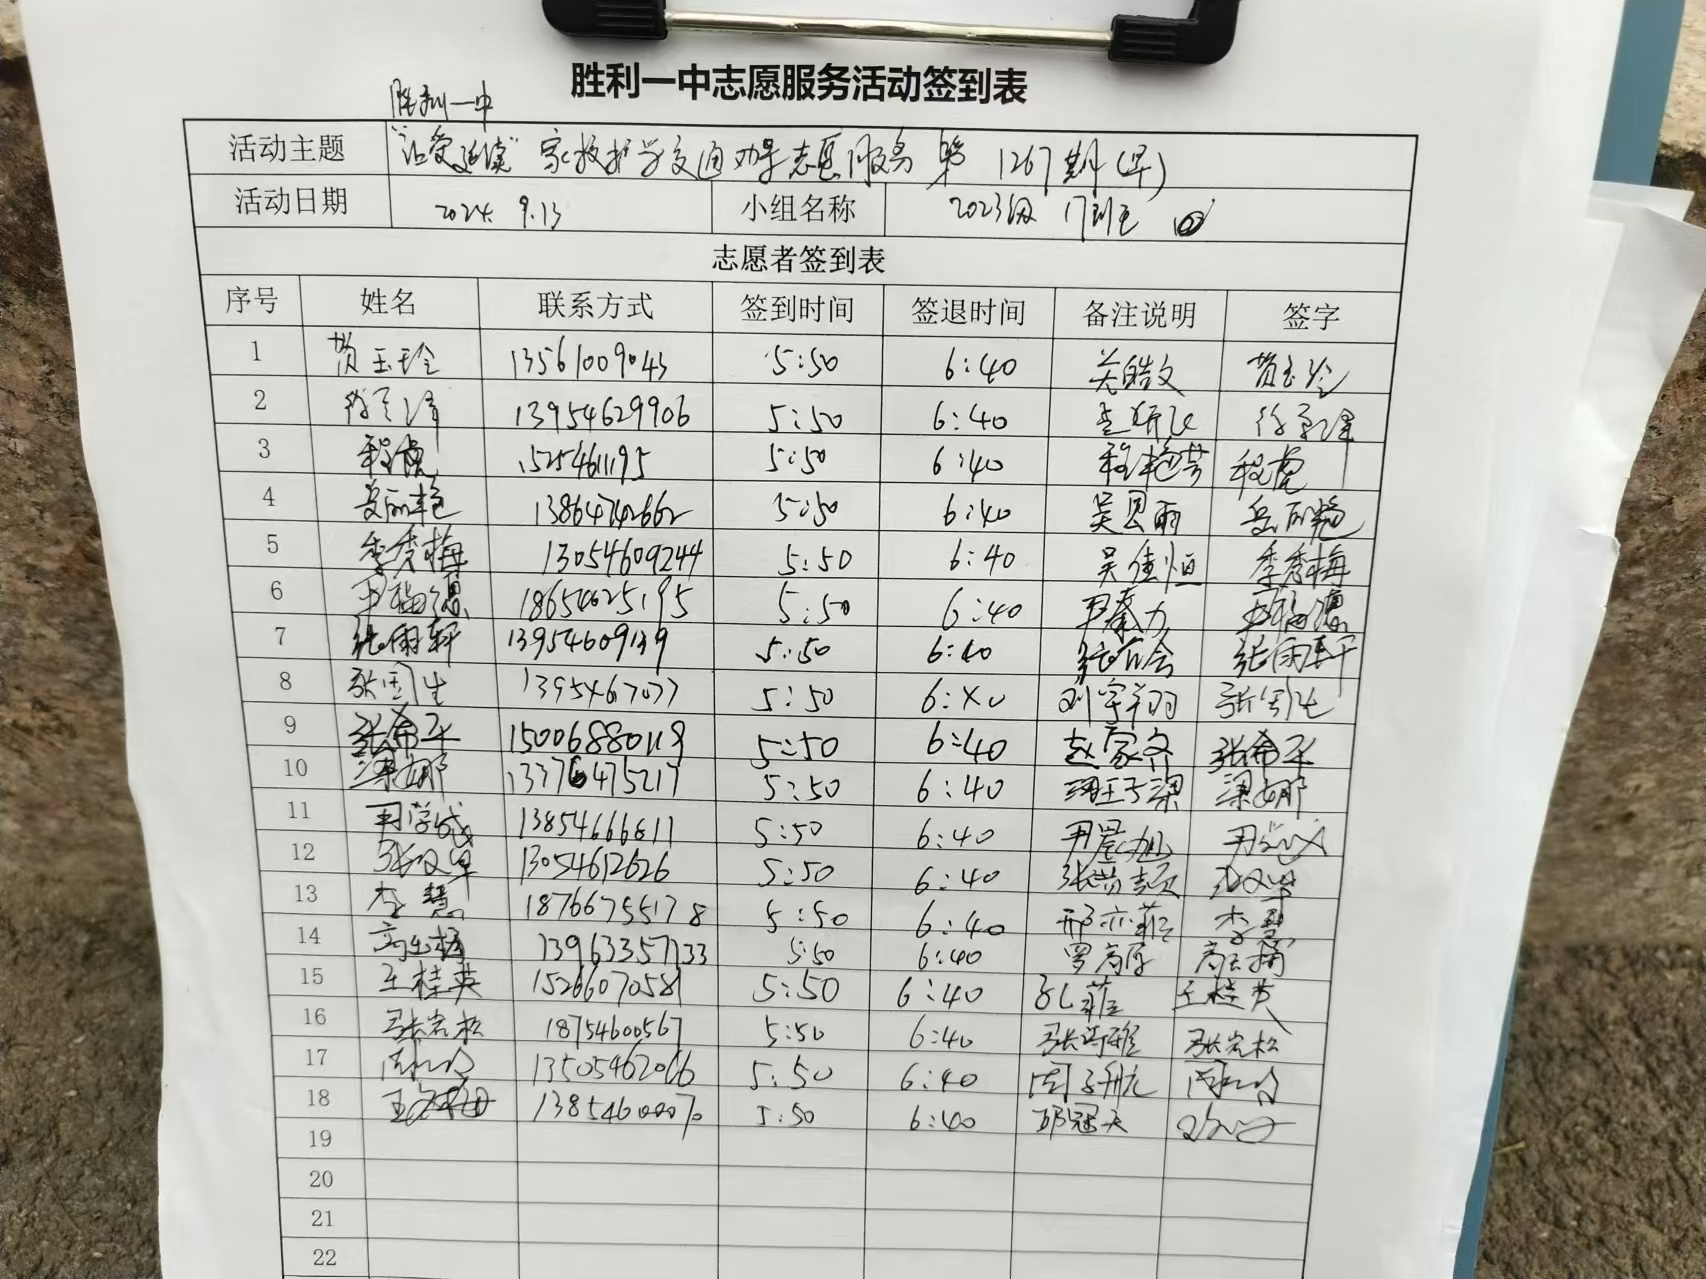 胜利一中志愿服务活动签到表
胜利一中
活动主题 "让爱延续"家校护学交通劝导志愿服务 第1267期(早)
活动日期 2024. 9.13 小组名称 2023级 17班
志愿者签到表
序号 姓名 联系方式 签到时间 签退时间 备注说明 签字
1 贾玉玲 13561009043 5:50 6:40 关皓文 贾玉玲
2 13954629906 5:50 6:40
3 程虎 15254611195 5:50 6:40 程艳芳 程虎
4 岳丽艳 13864742662 5:50 6:40 吴思雨 岳丽艳
5 季秀梅 13054609244 5:50 6:40 吴佳恒 季秀梅
6 18654625195 5:50 6:40 尹秦力
7 张雨轩 13954609139 5:50 6:40 张雨轩
8 张国生 1395467077 5:50 6:40 刘宇翔 张国生
9 张希平 15006880118 5:50 6:40 赵家齐 张希平
10 梁娜 13376475217 5:50 6:40 梁娜
11 13854666811 5:50 6:40
12 张文军 13054612626 5:50 6:40 张文军
13 李慧 18766755178 5:50 6:40 邢亦菲 李慧
14 高玉梅 13963357133 5:50 6:40 罗高原 高玉梅
15 王桂英 15266070581 5:50 6:40 孔菲 王桂英
16 张岩松 18754600567 5:50 6:40 张诗雅 张岩松
17 13505462066 5:50 6:40 周子航
18 13854600070 5:50 6:40 邱冠天
19
20
21
22